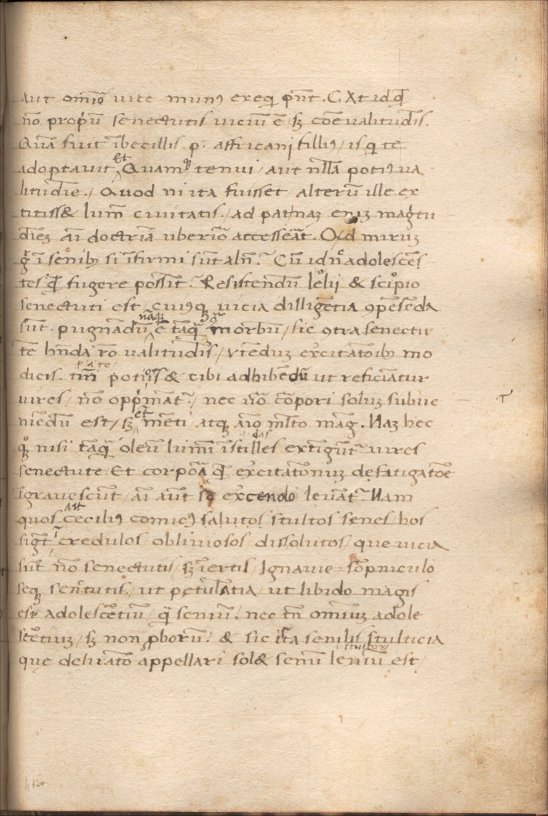 aut omīo uite mun9 exequi p̄nt. C At id qđ
nō propriū senectutis uiciū ē sʒ cōe ualitudīs.
Quā fuit ībecillis .p. affricani fillius, is qui te
adoptauit, et Quam tenui, aut nlla potius ua
litudīe, Quod ni ita fuisset alterū ille ex
titiss& lum̄ ciuitatis, ad patnaʒ eniʒ magītu
dieʒ aī doctrīa uberi9 accesseāt. Qđ miruʒ
g̊ ī senib9 si īfirmi sūt aln̄. Cū id n̄ adolescē
tes qđ fugere possūt. Resistendū lelii & scipio
senectuti est, eiusq uicia diligētia cp̄esēda
sūt. pugnadū naq ē taq̄ 9tra morbū, sic 9tra senectu
tē hn̄da rō ualitudīs, utēduʒ exercitātoib9 mo
dicis. tm̄ potiōis & cibi adhibendū ut reficiātur
uires, nō opp̄māt. nec uō corpori soluʒ subue
niēdū est, sʒ et mēti atq aīo mlto mag. Naʒ hec
q̊ nisi taq̄ oleū lumī īstilles extīgūt uires
senectute Et corpōa qđ exercitatōnuʒ defatigatōe
īgrauescūt, aī aut se exercendo leuāt Nam
quos ait Cecilius comic9 salutos stultos senes hos
sigt̄ credulos obliuiosos dissolutos, que uicia
sūt nō senectutis, sʒ īertis Ignauie sōpniculo
seq senectutis, ut petulātia, ut libido magis
est adolescētiū, q̄ senium, nec tn̄ omiuʒ adole
scētiuʒ, sʒ non pborū. & sic ista senilis stulticia
que deliratō appellari sol& senū leniū est,